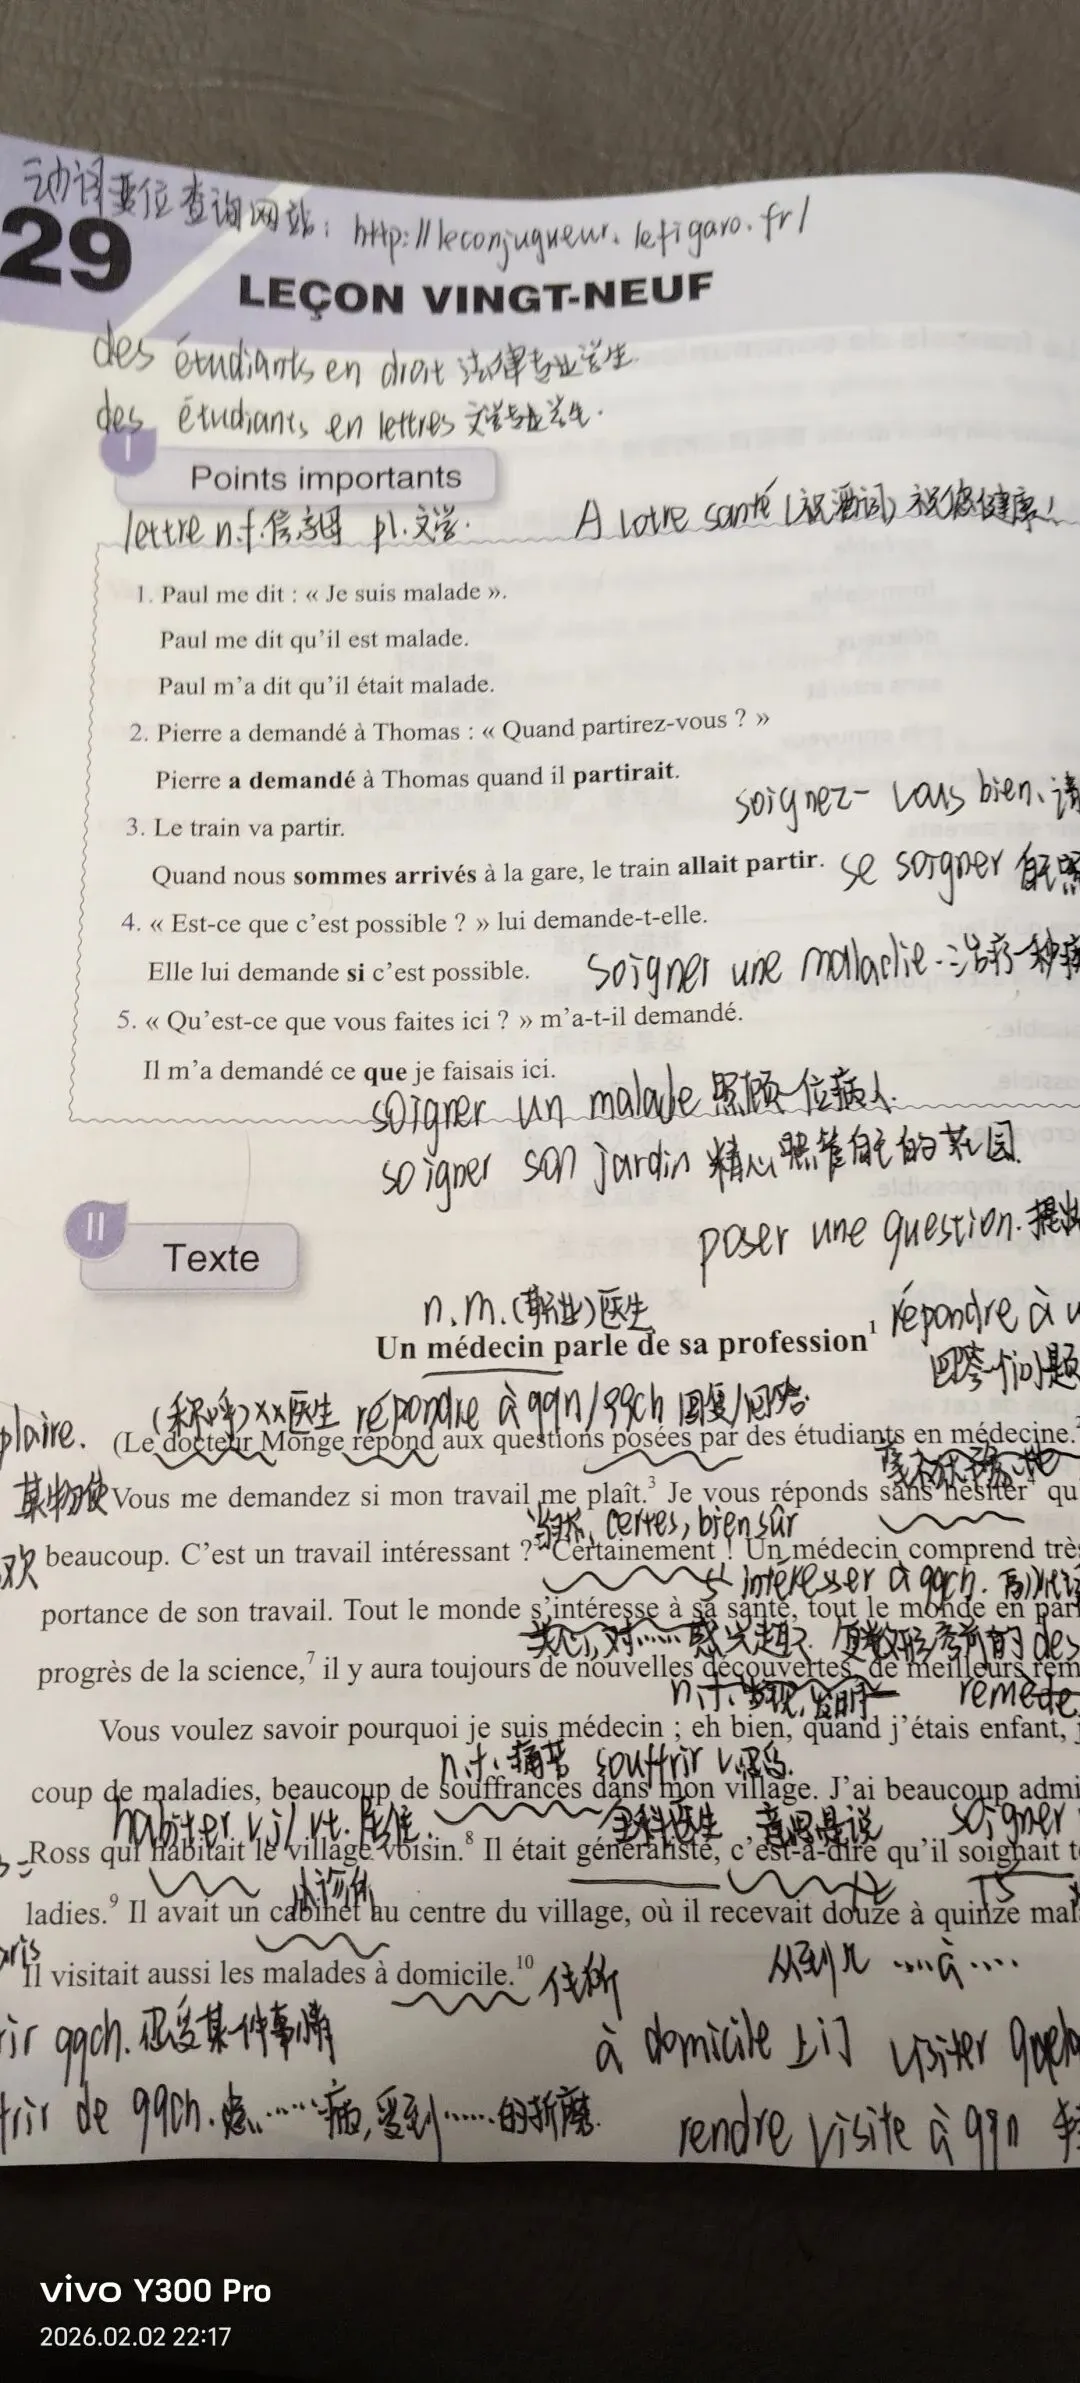 动词变位查询网站：http://leconjugueur.lefigaro.fr/
29
LEÇON VINGT-NEUF
des étudiants en droit 法律专业学生.
des étudiants en lettres 文学专业学生.
I
Points importants
lettre n.f.信,字母 pl.文学.
A votre santé (祝酒词) 祝您健康!
1. Paul me dit : « Je suis malade ».
Paul me dit qu'il est malade.
Paul m'a dit qu'il était malade.
2. Pierre a demandé à Thomas : « Quand partirez-vous ? »
Pierre a demandé à Thomas quand il partirait.
soignez-vous bien.请
3. Le train va partir.
Quand nous sommes arrivés à la gare, le train allait partir.
se soigner 自己照
4. « Est-ce que c'est possible ? » lui demande-t-elle.
Elle lui demande si c'est possible.
soigner une maladie.治疗一种病
5. « Qu'est-ce que vous faites ici ? » m'a-t-il demandé.
Il m'a demandé ce que je faisais ici.
soigner un malade 照顾一位病人.
soigner son jardin 精心照管自己的花园
poser une question.提出
II
Texte
n.m.(职业)医生
répondre à u
Un médecin parle de sa profession¹
回答一个问题
plaire.
(称呼)××医生 répondre à qqn/qqch 回复/回答.
(Le docteur Monge répond aux questions posées par des étudiants en médecine.²
毫不犹豫地
某物使
Vous me demandez si mon travail me plaît.³ Je vous réponds sans hésiter⁴ qu
当然, certes, bien sûr
欢
beaucoup. C'est un travail intéressant ?⁵ Certainement ! Un médecin comprend trè
s'intéresser à qqch.
portance de son travail. Tout le monde s'intéresse à sa santé, tout le monde en par
关心,对……感兴趣. 复数形容词前的des
progrès de la science,⁷ il y aura toujours de nouvelles découvertes, de meilleurs rem
n.f.发现,发明
remède
Vous voulez savoir pourquoi je suis médecin ; eh bien, quand j'étais enfant, j
n.f.痛苦 souffrir v.忍受.
coup de maladies, beaucoup de souffrances dans mon village. J'ai beaucoup admi
habiter v.i/v.t.居住.
全科医生
意思是说
soigner
Ross qui habitait le village voisin.⁸ Il était généraliste, c'est-à-dire qu'il soignait t
小诊所
12
15
ladies.⁹ Il avait un cabinet au centre du village, où il recevait douze à quinze mal
从几到几 ....à....
Il visitait aussi les malades à domicile.¹⁰
住所
rir qqch.忍受某一件事情
à domicile 上门
visiter quelq
frir de qqch.患……病,受到……的折磨.
rendre visite à qqn
vivo Y300 Pro
2026.02.02 22:17